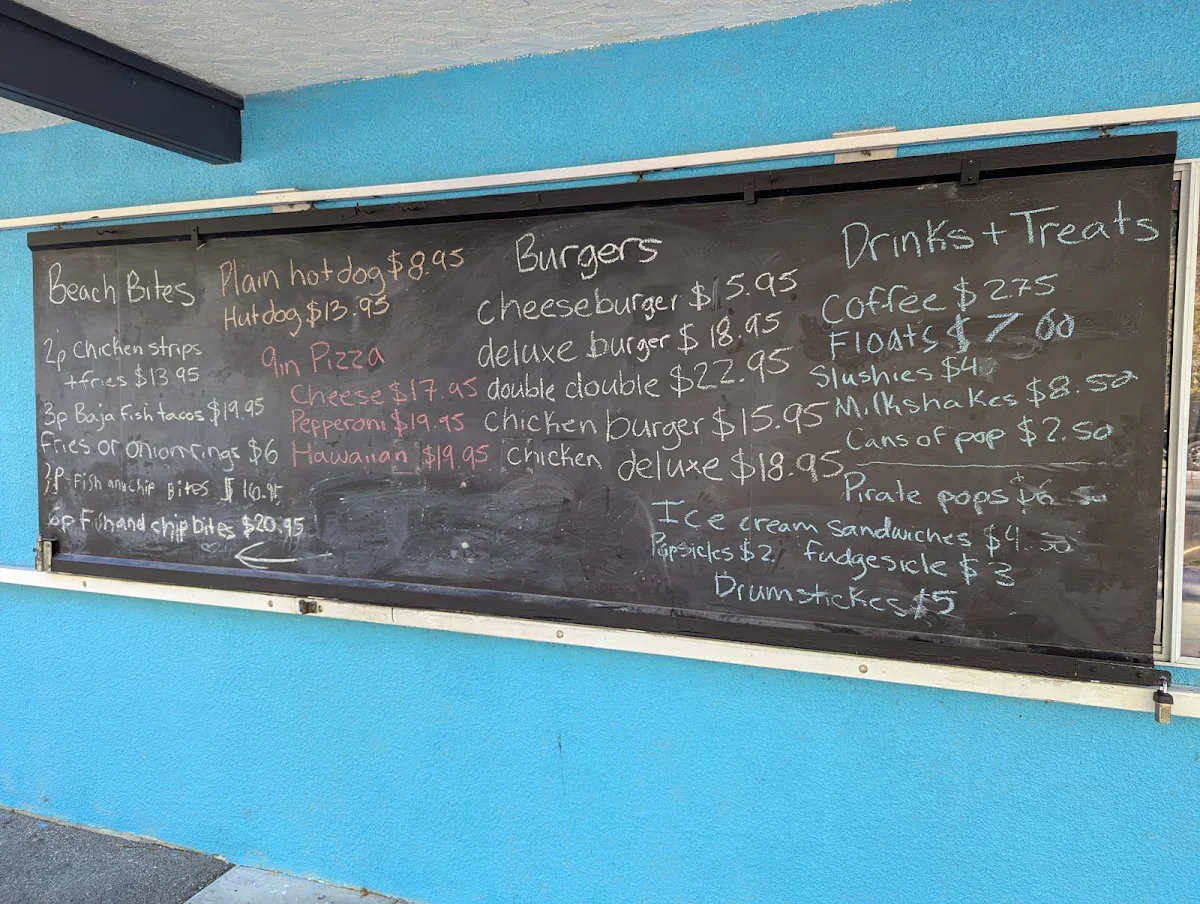 Beach Bites
2p Chicken strips
+fries $13.95
3p Baja Fish tacos $19.95
fries or onion rings $6
3p Fish and chip Bites $16.95
6p Fish and chip bites $20.95
Plain hot dog $8.95
Hutdog $13.95
9in Pizza
Cheese $17.95
Pepperoni $19.95
Hawaiian $19.95
Burgers
cheeseburger $15.95
deluxe burger $18.95
double double $22.95
Chicken burger $15.95
chicken deluxe $18.95
Drinks + Treats
Coffee $2.75
Floats $7.00
Slushies $4
Milkshakes $8.50
Cans of pop $2.50
Pirate pops
Ice cream sandwiches $4.50
Popsicles $2 fudgesicle $3
Drumstickes $5